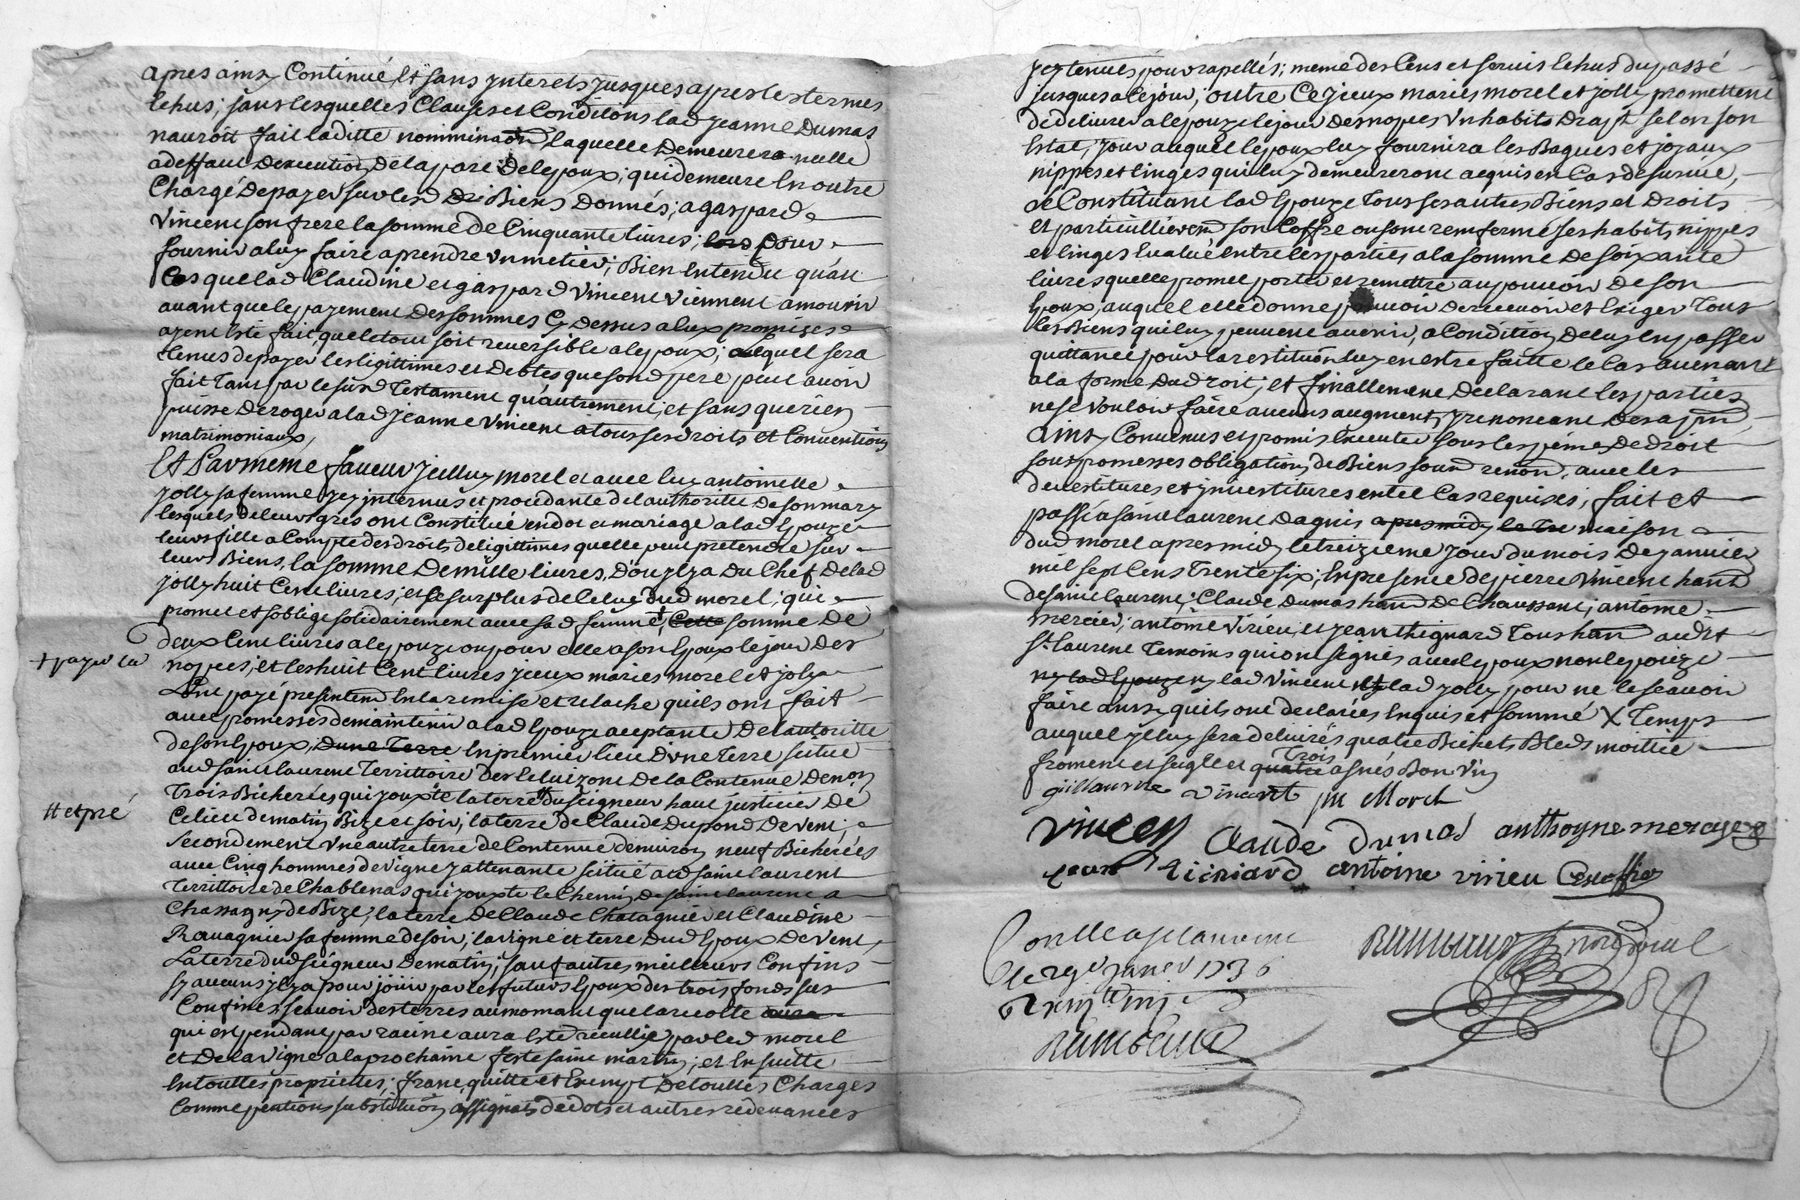 apres ainsy Continué Et sans jnterets jusques apres les termes
Echus; sans lesquelles Clauses et Conditions lad jeanne Dumas
nauroit fait laditte nominaõn laquelle Demeurera nulle
a deffaut Dexecution De la part De lepoux; qui demeure En outre
Chargé De payer sur lesd Biens Donnés; a gaspard
Vincent son frere la somme de Cinquante livres; pour
fournir a luy faire aprendre un metier; Bien Entendu quau
Cas que lad Claudine et gaspard Vincent viennent a mourir
avant que le payement Des sommes Cy Dessus a Eux promises
ayent Esté fait, que le tout soit reversible a lepoux; auquel sera
tenus de payer les ligittimes et Debtes que sond pere peut avoir
fait tant par le susd Testament qu'autrement, et sans que rien
puisse Deroger a lad jeanne Vincent a tous ses Droits et Conventions
matrimoniaux,
Et Par meme faveur jedluy morel et avec luy antoinette
jolly sa femme jcy jntervnue et procedante de l'authorité De son mary
lesquels de leurs grés ont Constitué en dot et mariage a lad Epouze
leur fille a Compte des droits de ligittimes quelle peut pretendre sur
leurs Biens, la somme De mille livres, Dou il y a Du Chef De lad
jolly huit Cent livres; et le surplus de Celuy dud morel; qui
promet et soblige solidairement avec sad femme + Cette somme De
+ payer la
deux Cent livres a lepouze ou pour elle a son Epoux le jour Des
nopces; et les huit Cent livres jceux mariés morel et jolly
Ont payé presentem En la remise et relache quils ont fait
avec promesses de maintenir a lad Epouze aceptante De lautoritté
de son Epoux; Dune Terre En premier lieu D'une Terre scitué
aud saint laurent Territtoire De De la Contenue Denon
Trois Bicherées qui jouxte la terre # du seigneur haut justicier De
# et pré
Ce lieu de matin Bize et soir; la terre de Claude Dupond De vent;
secondement une autre terre de Contenue denviron neuf Bicherées
avec Cinq hommes de vigne y attenante scitué aud saint laurent
Territtoire de Chablenas qui jouxte le Chemin de saint laurent a
Chassagny de Bize; la terre De Claude Chatagnier et Claudine
Ravagnier sa femme de soir; la vigne et terre Dud Epoux De vent,
La terre dud seigneur De matin; sauf autres meilleurs Confins
sy aucuns il y a pour jouir par les futurs Epoux des trois fonds sus
Confinés; scavoir des terres au moment que la recolte aura
qui est pendant par racine aura Esté recuellie par led morel
et De la vigne a la prochaine feste saint martin; et En suitte
En touttes proprietés; franc, quitte et Exempt De touttes Charges
Comme pentions substituõn assignats de dots et autres redevances
jcy tenues pour rapellés; meme des Cens et servis Echus du passé
jusques a Ce jour; outre Ce jceux mariés morel et jolly promettent
de delivrer a lepouze le jour Des nopces Un habits Drapt selon son
Estat, jour auquel lepoux luy fournira les Bagues et joyaux
nippes et linges qui luy demeureront acquis en Cas de survie,
se Constituant lad Epouze Tous ses autres Biens et Droits
et particullierem son Coffre ou sont remfermé ses habits, nippes
et linges Evalué entre les parties a la somme De soixante
livres quelle promet porter et remettre au pouvoir De son
Epoux, auquel elle donne pouvoir De recevoir et Exiger Tous
les Biens qui luy peuvent avenir, a Condition De luy En passer
quittance pour la restituõn luy en estre faitte le Cas avenant
a la forme Du Droit; et finallement Declarant les parties
ne se vouloir faire aucuns augment, y renonceant Des a pnt
Ainsy Convenus et promis Executer sous les peines De droit
sous promesses obligations de Biens soum renon, avec les
devestitures et jnvestitures en tel Cas requises; fait et
passé a saint laurent Dagnis apres midy maison
dud morel apres midy le treizieme jour du mois De janvier
mil sept Cens Trente six; En presence de pierre Vincent hant
de saint laurent; Claude Dumas hant De Chaussant; antoine
mercier; antoine virieu, et jean thignard Tous hant audt
St. Laurent Temoins qui ont signés avec lepoux non lepouze
ny lad Epouze ny lad Vincent ny lad jolly pour ne le scavoir
faire ainsy quils ont declarées Enquis et sommé X Temps
auquel il luy sera delivrés quatre Bichets Bleds moittié
froment et seigle et quatre Trois asnés Bon Vin
guillaume vincent pie Morel
Vincen Claude Dumas anthoyne mercyer
jean tieniard antoine virieu
Conllé a St Laurent
Le 23e janer 1736